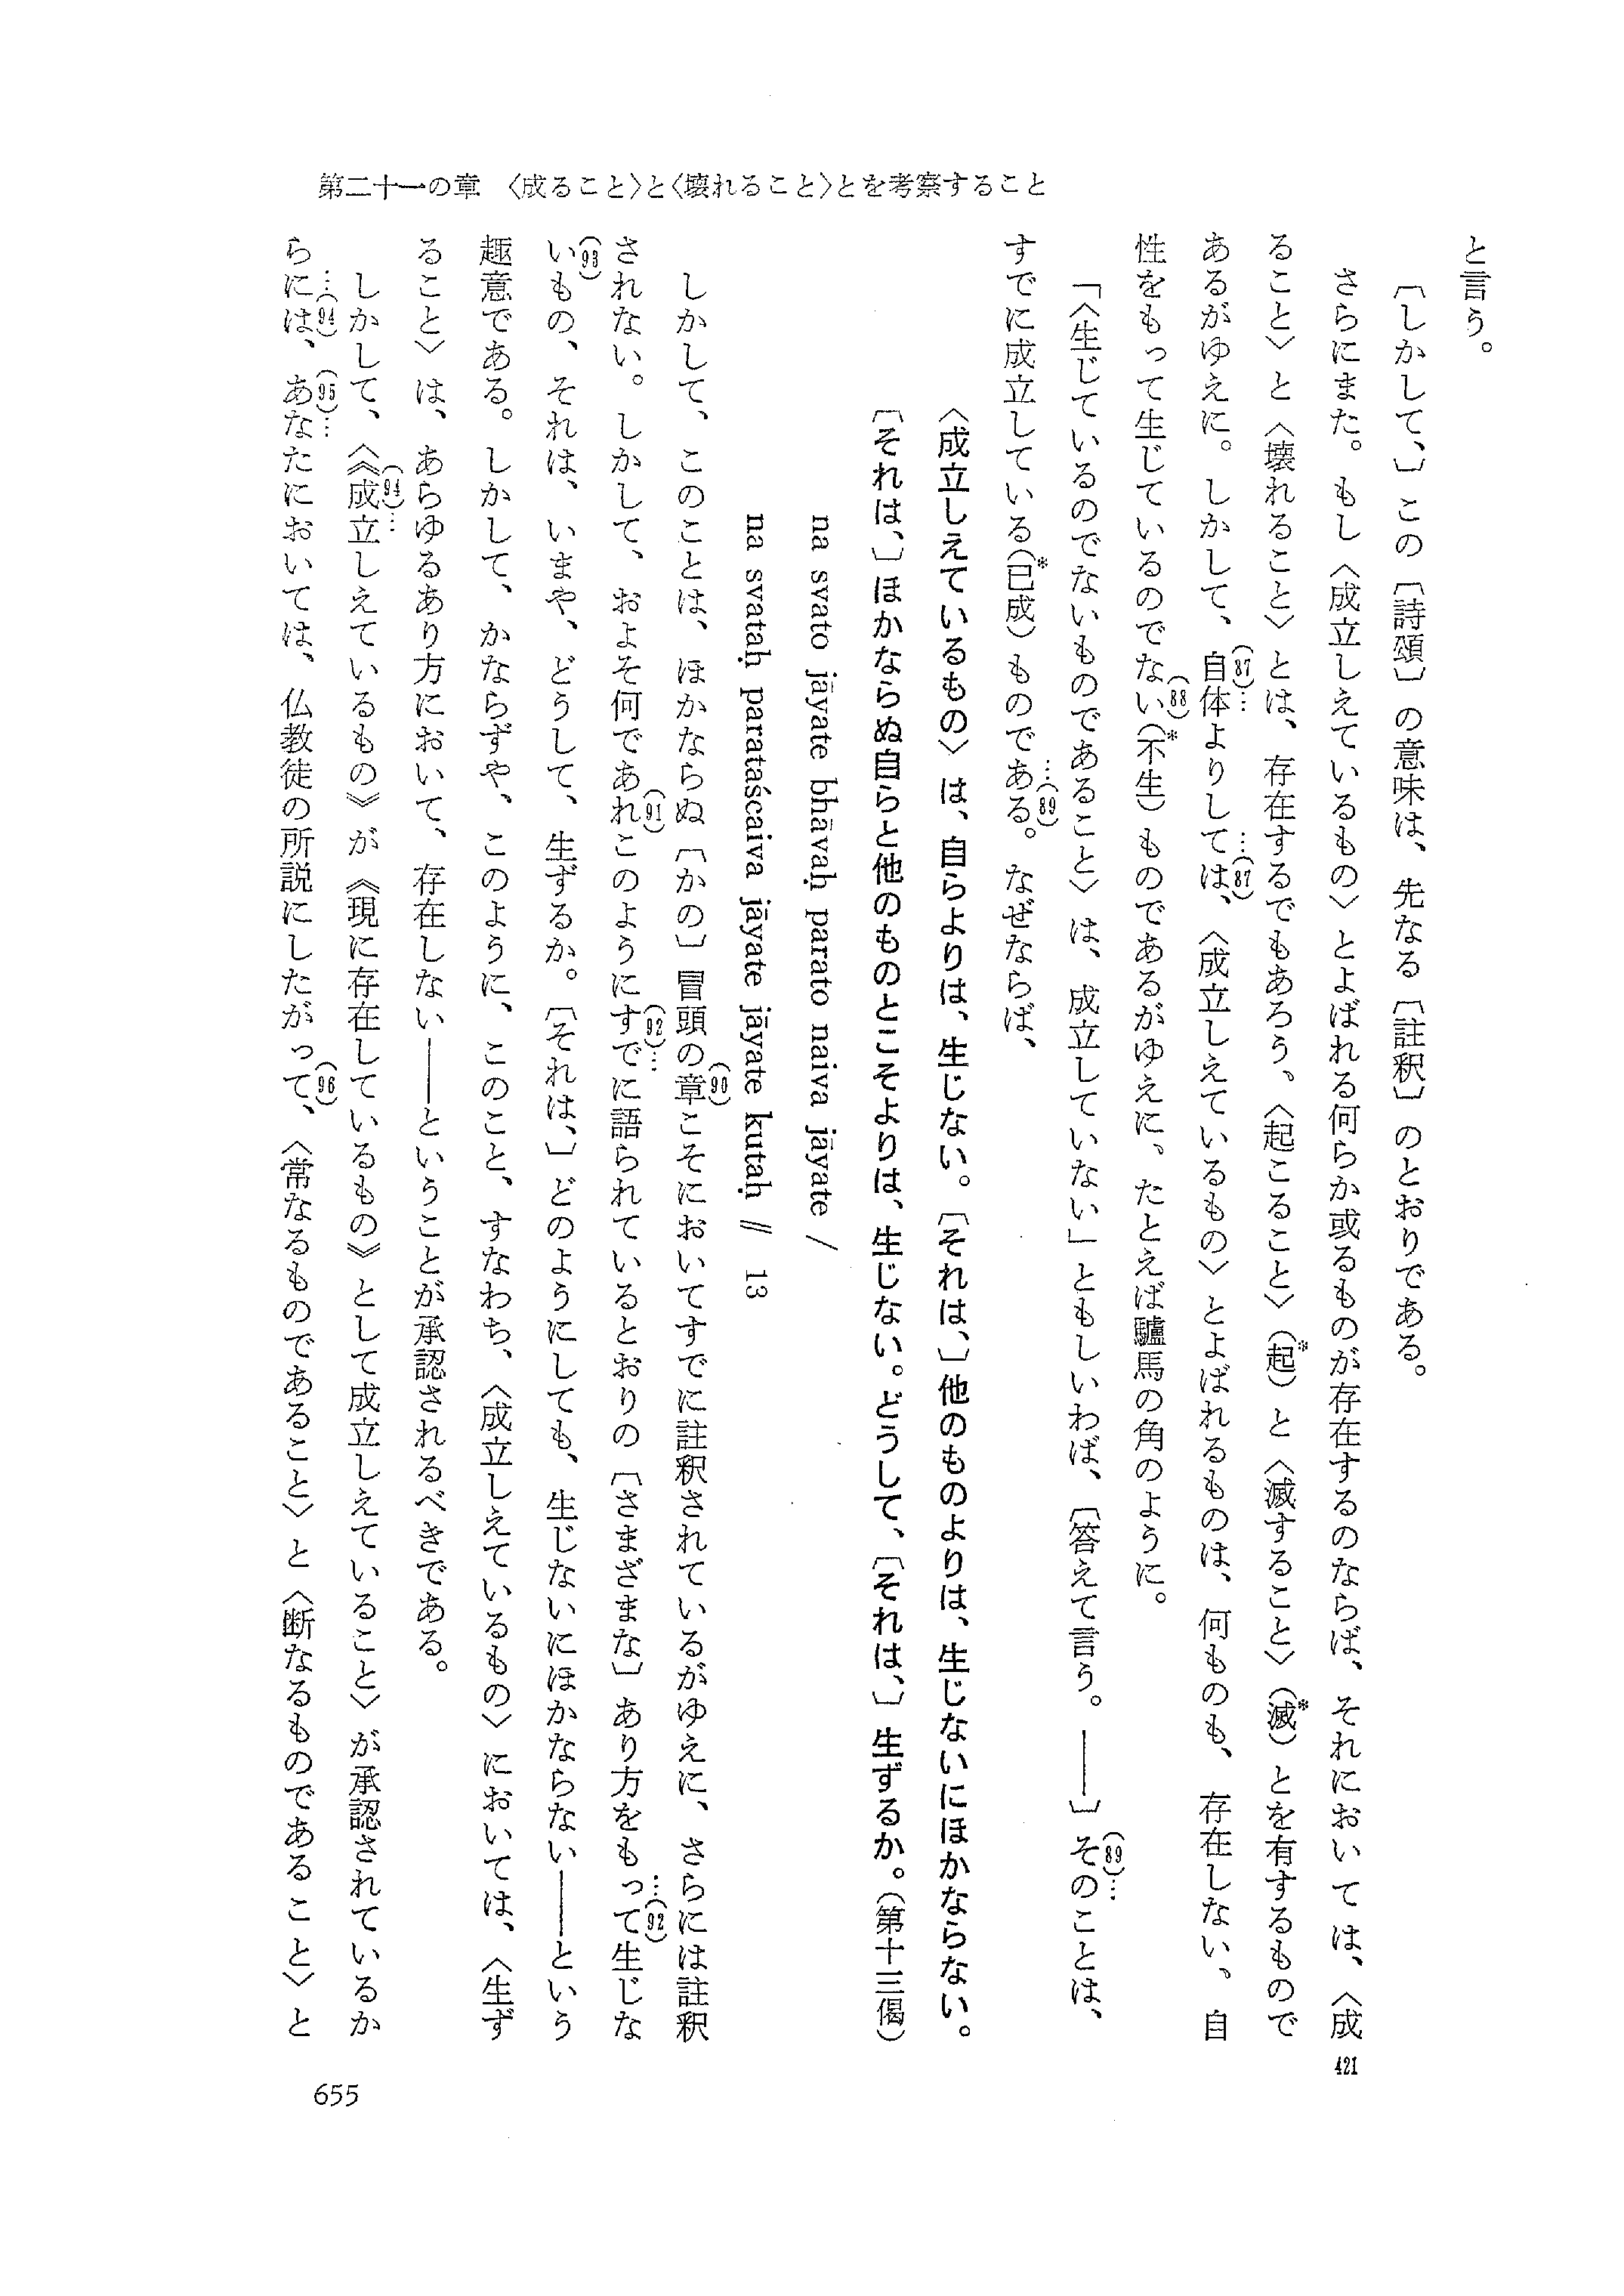 第二十一の章　〈成ること〉と〈壊れること〉とを考察すること
と言う。
〔しかして、〕この〔詩頌〕の意味は、先なる〔註釈〕のとおりである。
さらにまた。もし〈成立しえているもの〉とよばれる何らか或るものが存在するのならば、それにおいては、〈成
421
ること〉と〈壊れること〉とは、存在するでもあろう。〈起こること〉(起*)と〈滅すること〉(滅*)とを有するもので
あるがゆえに。しかして、(87)…自体よりしては…(87)、〈成立しえているもの〉とよばれるものは、何ものも、存在しない。自
性をもって生じているのでない(88)(不*生)ものであるがゆえに。たとえば驢馬の角のように。
「〈生じているのでないものであること〉は、成立していない」ともしいわば、〔答えて言う。――〕(89)…そのことは、
すでに成立している(已*成)ものである…(89)。なぜならば、
〈成立しえているもの〉は、自らよりは、生じない。〔それは、〕他のものよりは、生じないにほかならない。
〔それは、〕ほかならぬ自らと他のものとこそよりは、生じない。どうして、〔それは、〕生ずるか。(第十三偈)
na svato jāyate bhāvaḥ parato naiva jāyate /
na svataḥ parataścaiva jāyate jāyate kutaḥ // 13
しかして、このことは、ほかならぬ〔かの〕冒頭の章(90)こそにおいてすでに註釈されているがゆえに、さらには註釈
されない。しかして、およそ何であれ(91)このように(92)…すでに語られているとおりの〔さまざまな〕あり方をもって…(92)生じな
い(93)もの、それは、いまや、どうして、生ずるか。〔それは、〕どのようにしても、生じないにほかならない――という
趣意である。しかして、かならずや、このように、このこと、すなわち、〈成立しえているもの〉においては、〈生ず
ること〉は、あらゆるあり方において、存在しない――ということが承認されるべきである。
しかして、〈《(94)…成立しえているもの》が《現に存在しているもの》として成立しえていること〉が承認されているか
らには…(94)、(95)…あなたにおいては、仏教徒の所説にしたがって(96)、〈常なるものであること〉と〈断なるものであること〉と
655